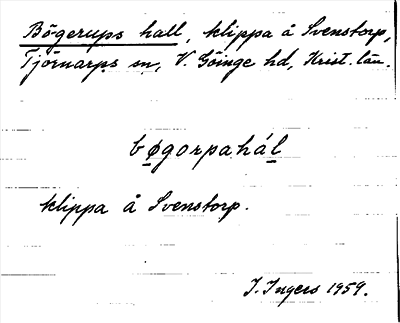 Bögerups hall, klippa å Svenstorp,
Tjörnarps sn, V. Göinge hd, Krist. län.
bøgorpahál
klippa å Svenstorp.
I. Ingers 1959.